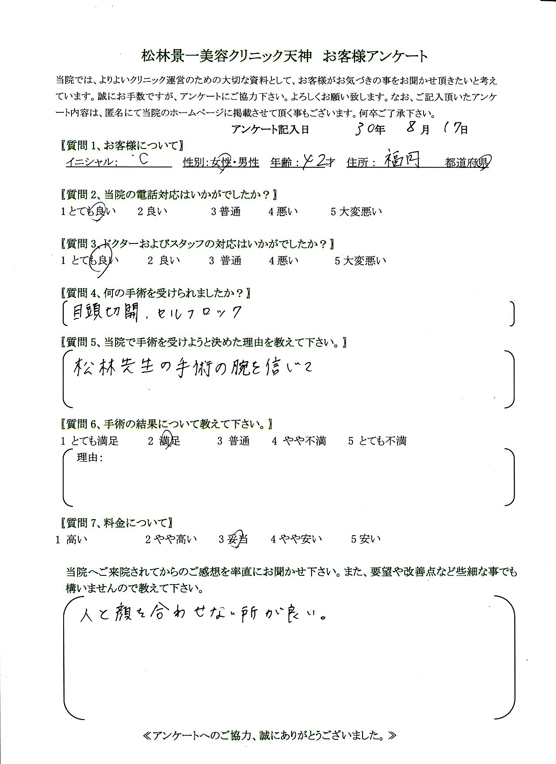 松林景一美容クリニック天神　お客様アンケート
当院では、よりよいクリニック運営のための大切な資料として、お客様がお気づきの事をお聞かせ頂きたいと考え
ています。誠にお手数ですが、アンケートにご協力下さい。よろしくお願い致します。なお、ご記入頂いたアンケ
ート内容は、匿名にて当院のホームページに掲載させて頂く事もございます。何卒ご了承下さい。
アンケート記入日　30年　8月　17日
〖質問1、お客様について〗
イニシャル：　C　性別：女性・男性　年齢：42才　住所：　福岡　都道府県
〖質問2、当院の電話対応はいかがでしたか？〗
1とても良い　2良い　3普通　4悪い　5大変悪い
〖質問3、ドクターおよびスタッフの対応はいかがでしたか？〗
1 とても良い　2 良い　3 普通　4悪い　5大変悪い
〖質問4、何の手術を受けられましたか？〗
目頭切開、セルフロック
〖質問5、当院で手術を受けようと決めた理由を教えて下さい。〗
松林先生の手術の腕を信じて
〖質問6、手術の結果について教えて下さい。〗
1 とても満足　2 満足　3 普通　4 やや不満　5 とても不満
理由：
〖質問7、料金について〗
1 高い　2やや高い　3妥当　4やや安い　5安い
当院へご来院されてからのご感想を率直にお聞かせ下さい。また、要望や改善点など些細な事でも
構いませんので教えて下さい。
人と顔を合わせない所が良い。
≪アンケートへのご協力、誠にありがとうございました。≫